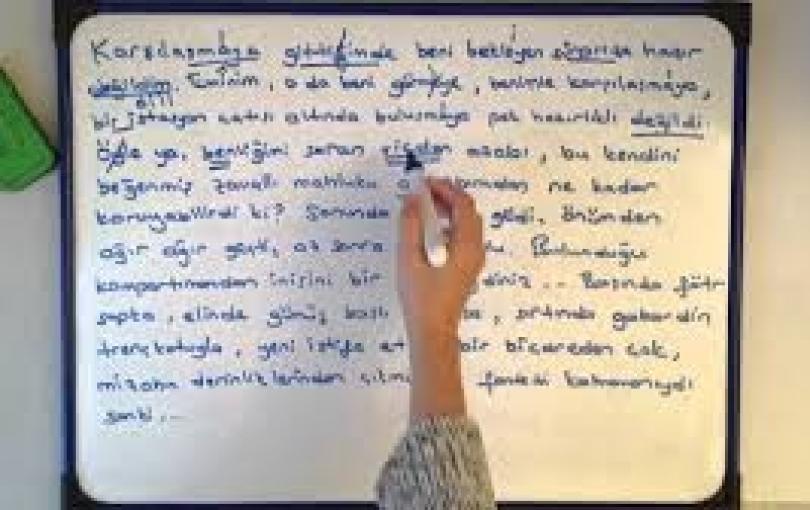 Karşılaşmaya gittiğimde beni bekleyen sürprize hazır
değildim. Eminim, o da beni görmeye, benimle karşılaşmaya,
bir istasyon çatısı altında buluşmaya pek hazırlıklı değildi.
Öyle ya, benliğini saran çiçeğden azabı, bu kendini
beğenmiş zavallı mahluku ne kadar
koruyabilirdi ki? Sonunda geldi. Önümden
ağır ağır geçti, az sonra Bulunduğu
kompartımandan inişini bir Başında fötr
şapka, elinde gümüş başlı sırtında gabardin
trençkotuyla, yeni istifa bir biçareden çok,
mizahın derinliklerinden kahramanıydı
sanki...